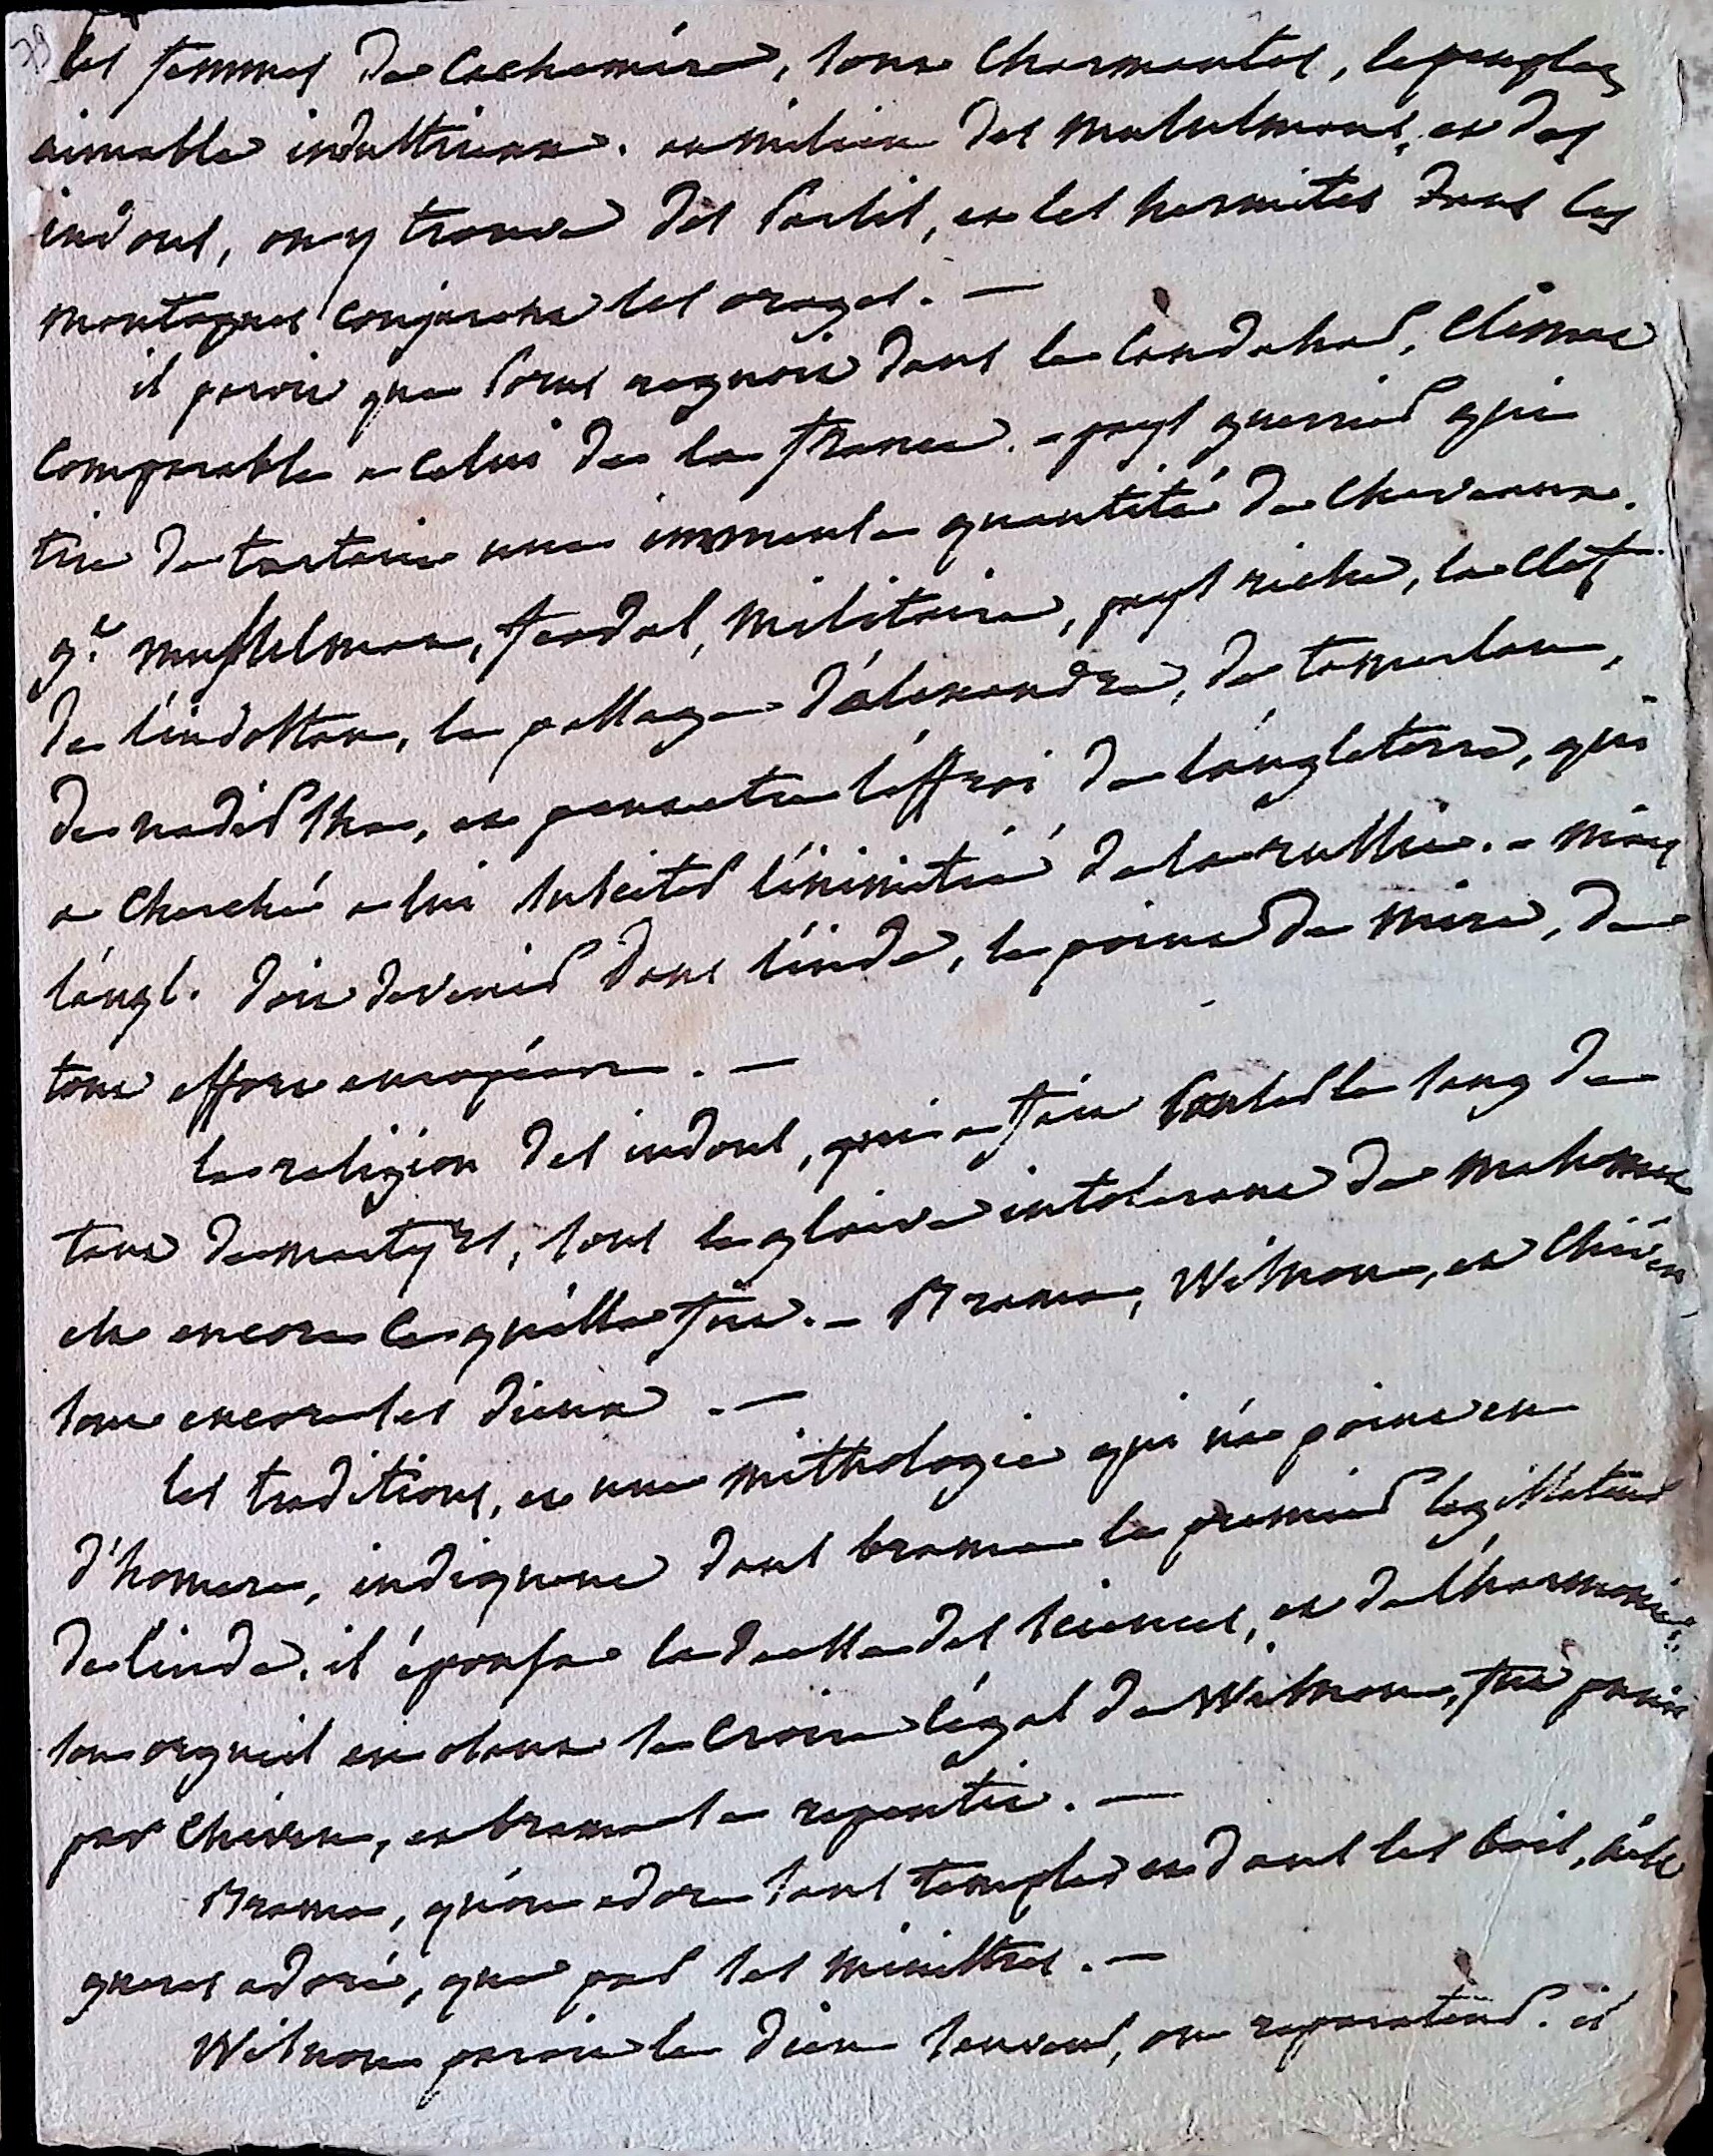 les femmes de Cachemire, sont charmantes, le peuple
aimable industrieux. au milieu des musulmans, et des
indous, on y trouve des Parsis, et les hermites dans les
montagnes conjurent les orages. —
il paroit que Porus regnoit dans le Candahar, climat
comparable a celui de la france. – pays guerrier qui
tire de tartarie une immense quantité de chevaux.
gt musulman, feodal, militaire, pays riche, la clef
de l'indostan, le passage d'alexandre, de tamerlan,
de nadir sha, et peut etre l'effroi de l'angleterre, qui
a cherché a lui susciter l'inimitié de la russie. – mais
l'angl. doit devenir dans l'inde, le point de mire, de
tout effort européen. —
la religion des indous, qui a fait couler le sang de
tant de martyrs, sous le glaive intolerant de mahomet
est encore ce qu'elle fut. – Brama, Wisnou, et Chiven
sont encore les dieux. —
les traditions, et une mithologie qui n'a point eu
d'homere, indiquent dans brama le premier legislateur
de l'inde. il épousa la deesse des sciences, et de l'harmonie.
son orgueil en osant se croire l'égal de Wisnou, fut puni
par Chiven, et brama se repentit. —
Brama, qu'on adore sans temple et dans les bois, n'est
gueres adoré, que par ses ministres. —
Wisnou paroit le dieu sauveur, ou reparateur. il